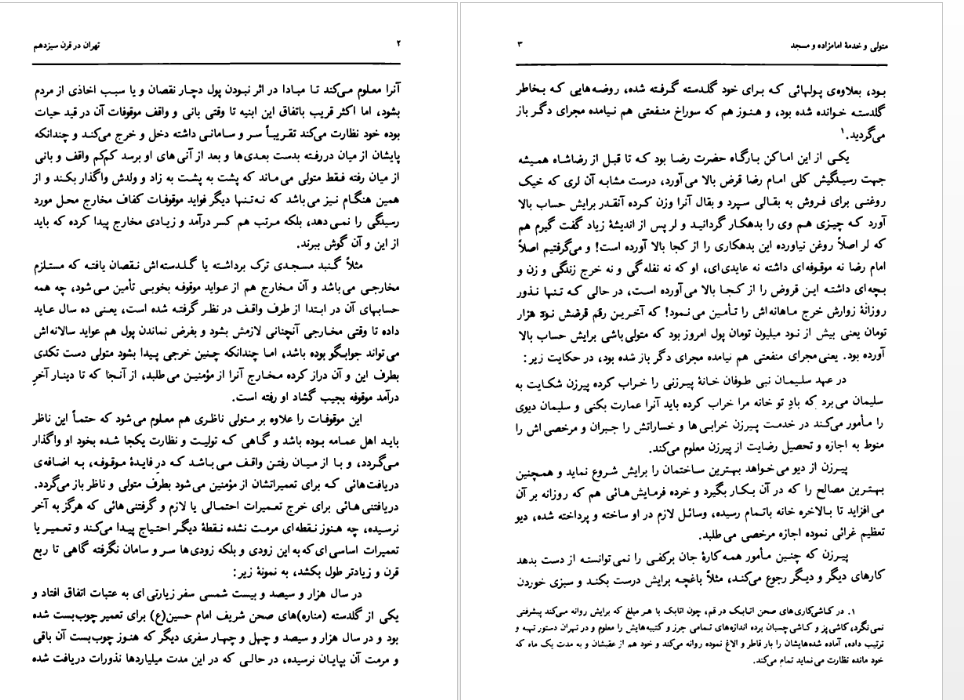 ۲ تهران در قرن سیزدهم
آنرا معلوم می‌کند تا مبادا در اثر نبودن پول دچار نقصان و یا سبب اخاذی از مردم
بشود، اما اکثر قریب باتفاق این ابنیه تا وقتی بانی و واقف موقوفات آن در قید حیات
بوده خود نظارت می‌کند تقریباً سر و سامانی داشته دخل و خرج می‌کند و چندانکه
پایشان از میان دررفته بدست بعدی‌ها و بعد از آنی‌های او برسد کم‌کم واقف و بانی
از میان رفته فقط متولی می‌ماند که پشت به پشت به زاد و ولدش واگذار بکند و از
همین هنگام نیز می‌باشد که نه‌تنها دیگر فواید موقوفات کفاف مخارج محل مورد
رسیدگی را نمی‌دهد، بلکه مرتب هم کسر درآمد و زیادی مخارج پیدا کرده که باید
از این و آن گوش ببرند.
مثلاً گنبد مسجدی ترک برداشته یا گلدسته‌اش نقصان یافته که مستلزم
مخارجی می‌باشد و آن مخارج هم از عواید موقوفه بخوبی تأمین می‌شود، چه همه
حسابهای آن در ابتدا از طرف واقف در نظر گرفته شده است، یعنی ده سال عاید
داده تا وقتی مخارجی آنچنانی لازمش بشود و بفرض نماندن پول هم عواید سالانه‌اش
می‌تواند جوابگو بوده باشد، اما چندانکه چنین خرجی پیدا بشود متولی دست تکدی
بطرف این و آن دراز کرده مخارج آنرا از مؤمنین می‌طلبد، از آنجا که تا دینار آخرِ
درآمد موقوفه بجیب گشاد او رفته است.
این موقوفات را علاوه بر متولی ناظری هم معلوم می‌شود که حتماً این ناظر
باید اهل عمامه بوده باشد و گاهی که تولیت و نظارت یکجا شده بخود او واگذار
می‌گردد، و با از میان رفتن واقف می‌باشد که در فایدهٔ موقوفه، به اضافه‌ی
دریافت‌هائی که برای تعمیراتشان از مؤمنین می‌شود بطرف متولی و ناظر باز می‌گردد.
دریافتنی‌هائی برای خرج تعمیرات احتمالی یا لازم و گرفتنی‌هائی که هرگز به آخر
نرسیده، چه هنوز نقطه‌ای مرمت نشده نقطهٔ دیگر احتیاج پیدا می‌کند و تعمیر یا
تعمیرات اساسی‌ای که به این زودی و بلکه زودی‌ها سر و سامان نگرفته گاهی تا ربع
قرن و زیادتر طول بکشد، به نمونهٔ زیر:
در سال هزار و سیصد و بیست شمسی سفر زیارتی‌ای به عتبات اتفاق افتاد و
یکی از گلدسته (مناره)های صحن شریف امام حسین(ع) برای تعمیر چوب‌بست شده
بود و در سال هزار و سیصد و چهل و چهار سفری دیگر که هنوز چوب‌بست آن باقی
و مرمت آن بپایان نرسیده، در حالی که در این مدت میلیاردها نذورات دریافت شده
متولی و خدمهٔ امامزاده و مسجد ۳
بود، بعلاوه‌ی پولهائی که برای خود گلدسته گرفته شده، روضه‌هایی که بخاطر
گلدسته خوانده شده بود، و هنوز هم که سوراخ منفعتی هم نیامده مجرای دگر باز
می‌گردید.۱
یکی از این اماکن بارگاه حضرت رضا بود که تا قبل از رضاشاه همیشه
جهت رسیدگیش کلی امام رضا قرض بالا می‌آورد، درست مشابه آن لری که خیک
روغنی برای فروش به بقالی سپرد و بقال آنرا وزن کرده آنقدر برایش حساب بالا
آورد که چیزی هم وی را بدهکار گردانید و لر پس از اندیشهٔ زیاد گفت گیرم هم
که لر اصلاً روغن نیاورده این بدهکاری را از کجا بالا آورده است! و می‌گرفتیم اصلاً
امام رضا نه موقوفه‌ای داشته نه عایدی‌ای، او که نه نفله‌گی و نه خرج زندگی و زن و
بچه‌ای داشته این قروض را از کجا بالا می‌آورده است، در حالی که تنها نذور
روزانهٔ زوارش خرج ماهانه‌اش را تأمین می‌نمود! که آخرین رقم قرضش نود هزار
تومان یعنی بیش از نود میلیون تومان پول امروز بود که متولی‌باشی برایش حساب بالا
آورده بود. یعنی‌مجرای منفعتی هم نیامده مجرای دگر باز شده بود، در حکایت زیر:
در عهد سلیمان نبی طوفان خانهٔ پیرزنی را خراب کرده پیرزن شکایت به
سلیمان می‌برد که بادِ تو خانه مرا خراب کرده باید آنرا عمارت بکنی و سلیمان دیوی
را مأمور می‌کند در خدمت پیرزن خرابی‌ها و خساراتش را جبران و مرخصی‌اش را
منوط به اجازه و تحصیل رضایت از پیرزن معلوم می‌کند.
پیرزن از دیو می‌خواهد بهترین ساختمان را برایش شروع نماید و همچنین
بهترین مصالح را که در آن بکار بگیرد و خرده فرمایش‌هائی هم که روزانه بر آن
می‌افزاید تا بالاخره خانه باتمام رسیده، وسائل لازم در او ساخته و پرداخته شده، دیو
تعظیم غرائی نموده اجازه مرخصی می‌طلبد.
پیرزن که چنین مأمور همه‌کارهٔ جان برکفی را نمی‌توانسته از دست بدهد
کارهای دیگر و دیگر رجوع می‌کند، مثلاً باغچه برایش درست بکند و سبزی خوردن
۱. در کاشی‌کاری‌های صحن اتابک در قم، چون اتابک با هر مبلغ که برایش روانه می‌کند پیشرفتی
نمی‌نگرد، کاشی‌پز و کاشی‌چسبان برده اندازه‌های تمامی جرز و کتیبه‌هایش را معلوم و در تهران دستور تهیه و
ترتیب داده، آماده شده‌هایشان را بار قاطر و الاغ نموده روانه می‌کند و خود هم از عقبشان و به مدت یک ماه که
خود مانده نظارت می‌نماید تمام می‌کند.